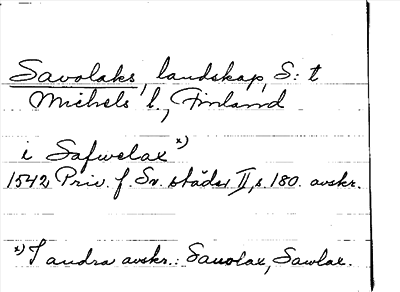 Savolaks, landskap, S:t
Michels l., Finland
i Safwelax x)
1542 Priv. f. Sv. städer II, s. 180. avskr.
x) I andra avskr.: Sauolax, Sawlax.